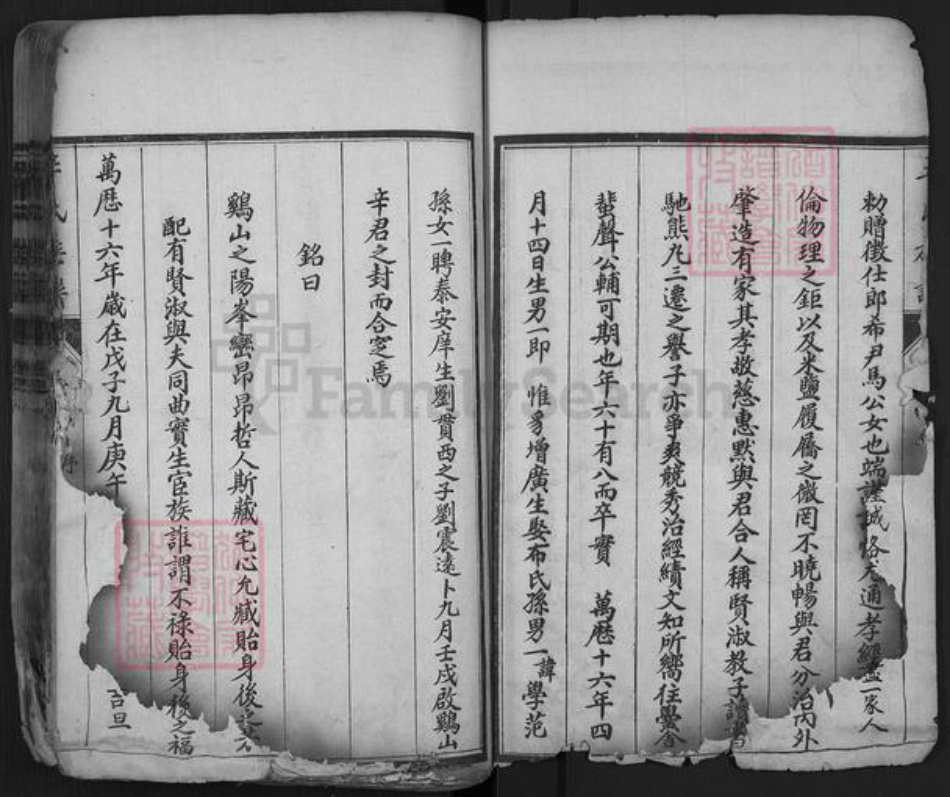 勅贈徵仕郎希尹馬公女也端謹誠恪尤通孝經盡一家人
倫物理之鉅以及米鹽履屩之微罔不曉暢與君分治內外
肇造有家其孝敬慈惠默與君合人稱賢淑教子讀書
馳熊丸三遷之譽子亦爭爽競秀治經績文知所嚮往黌舍
蜚聲公輔可期也年六十有八而卒實 萬曆十六年四
月十四日生男一即 惟豸增廣生娶布氏孫男一諱學范
孫女一聘泰安庠生劉貫西之子劉震遠卜九月壬戌啟鷄山
辛君之封而合窆焉
銘曰
鷄山之陽峯巒昂昂哲人斯藏宅心允臧貽身後
配有賢淑與夫同曲實生宦族誰謂不祿貽身後之福
萬曆十六年歲在戊子九月庚午
吉旦
FamilySearch